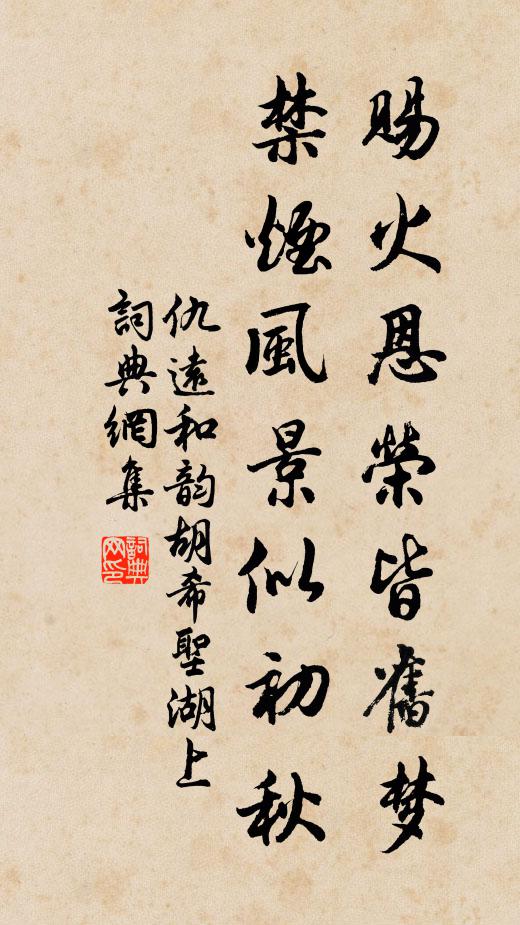 賜火恩榮皆舊梦
禁煙風景似初秋
仇遠和韵胡希聖湖上
詞典網集
詞典网印